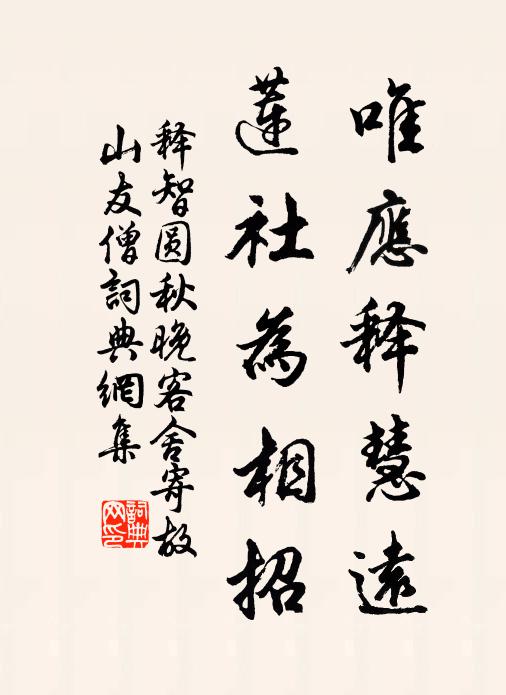 唯應释慧遠
蓮社為相招
释智圆秋晚客舍寄故
山友僧詞典網集
詞典
网印